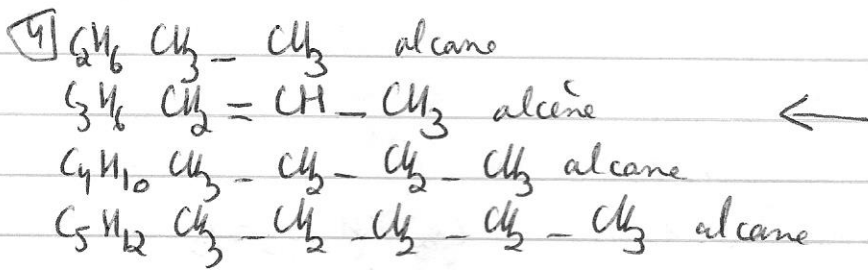 4) C2H6 CH3 – CH3 alcane
C3H6 CH2 = CH – CH3 alcène ←
C4H10 CH3 – CH2 – CH2 – CH3 alcane
C5H12 CH3 – CH2 – CH2 – CH2 – CH3 alcane